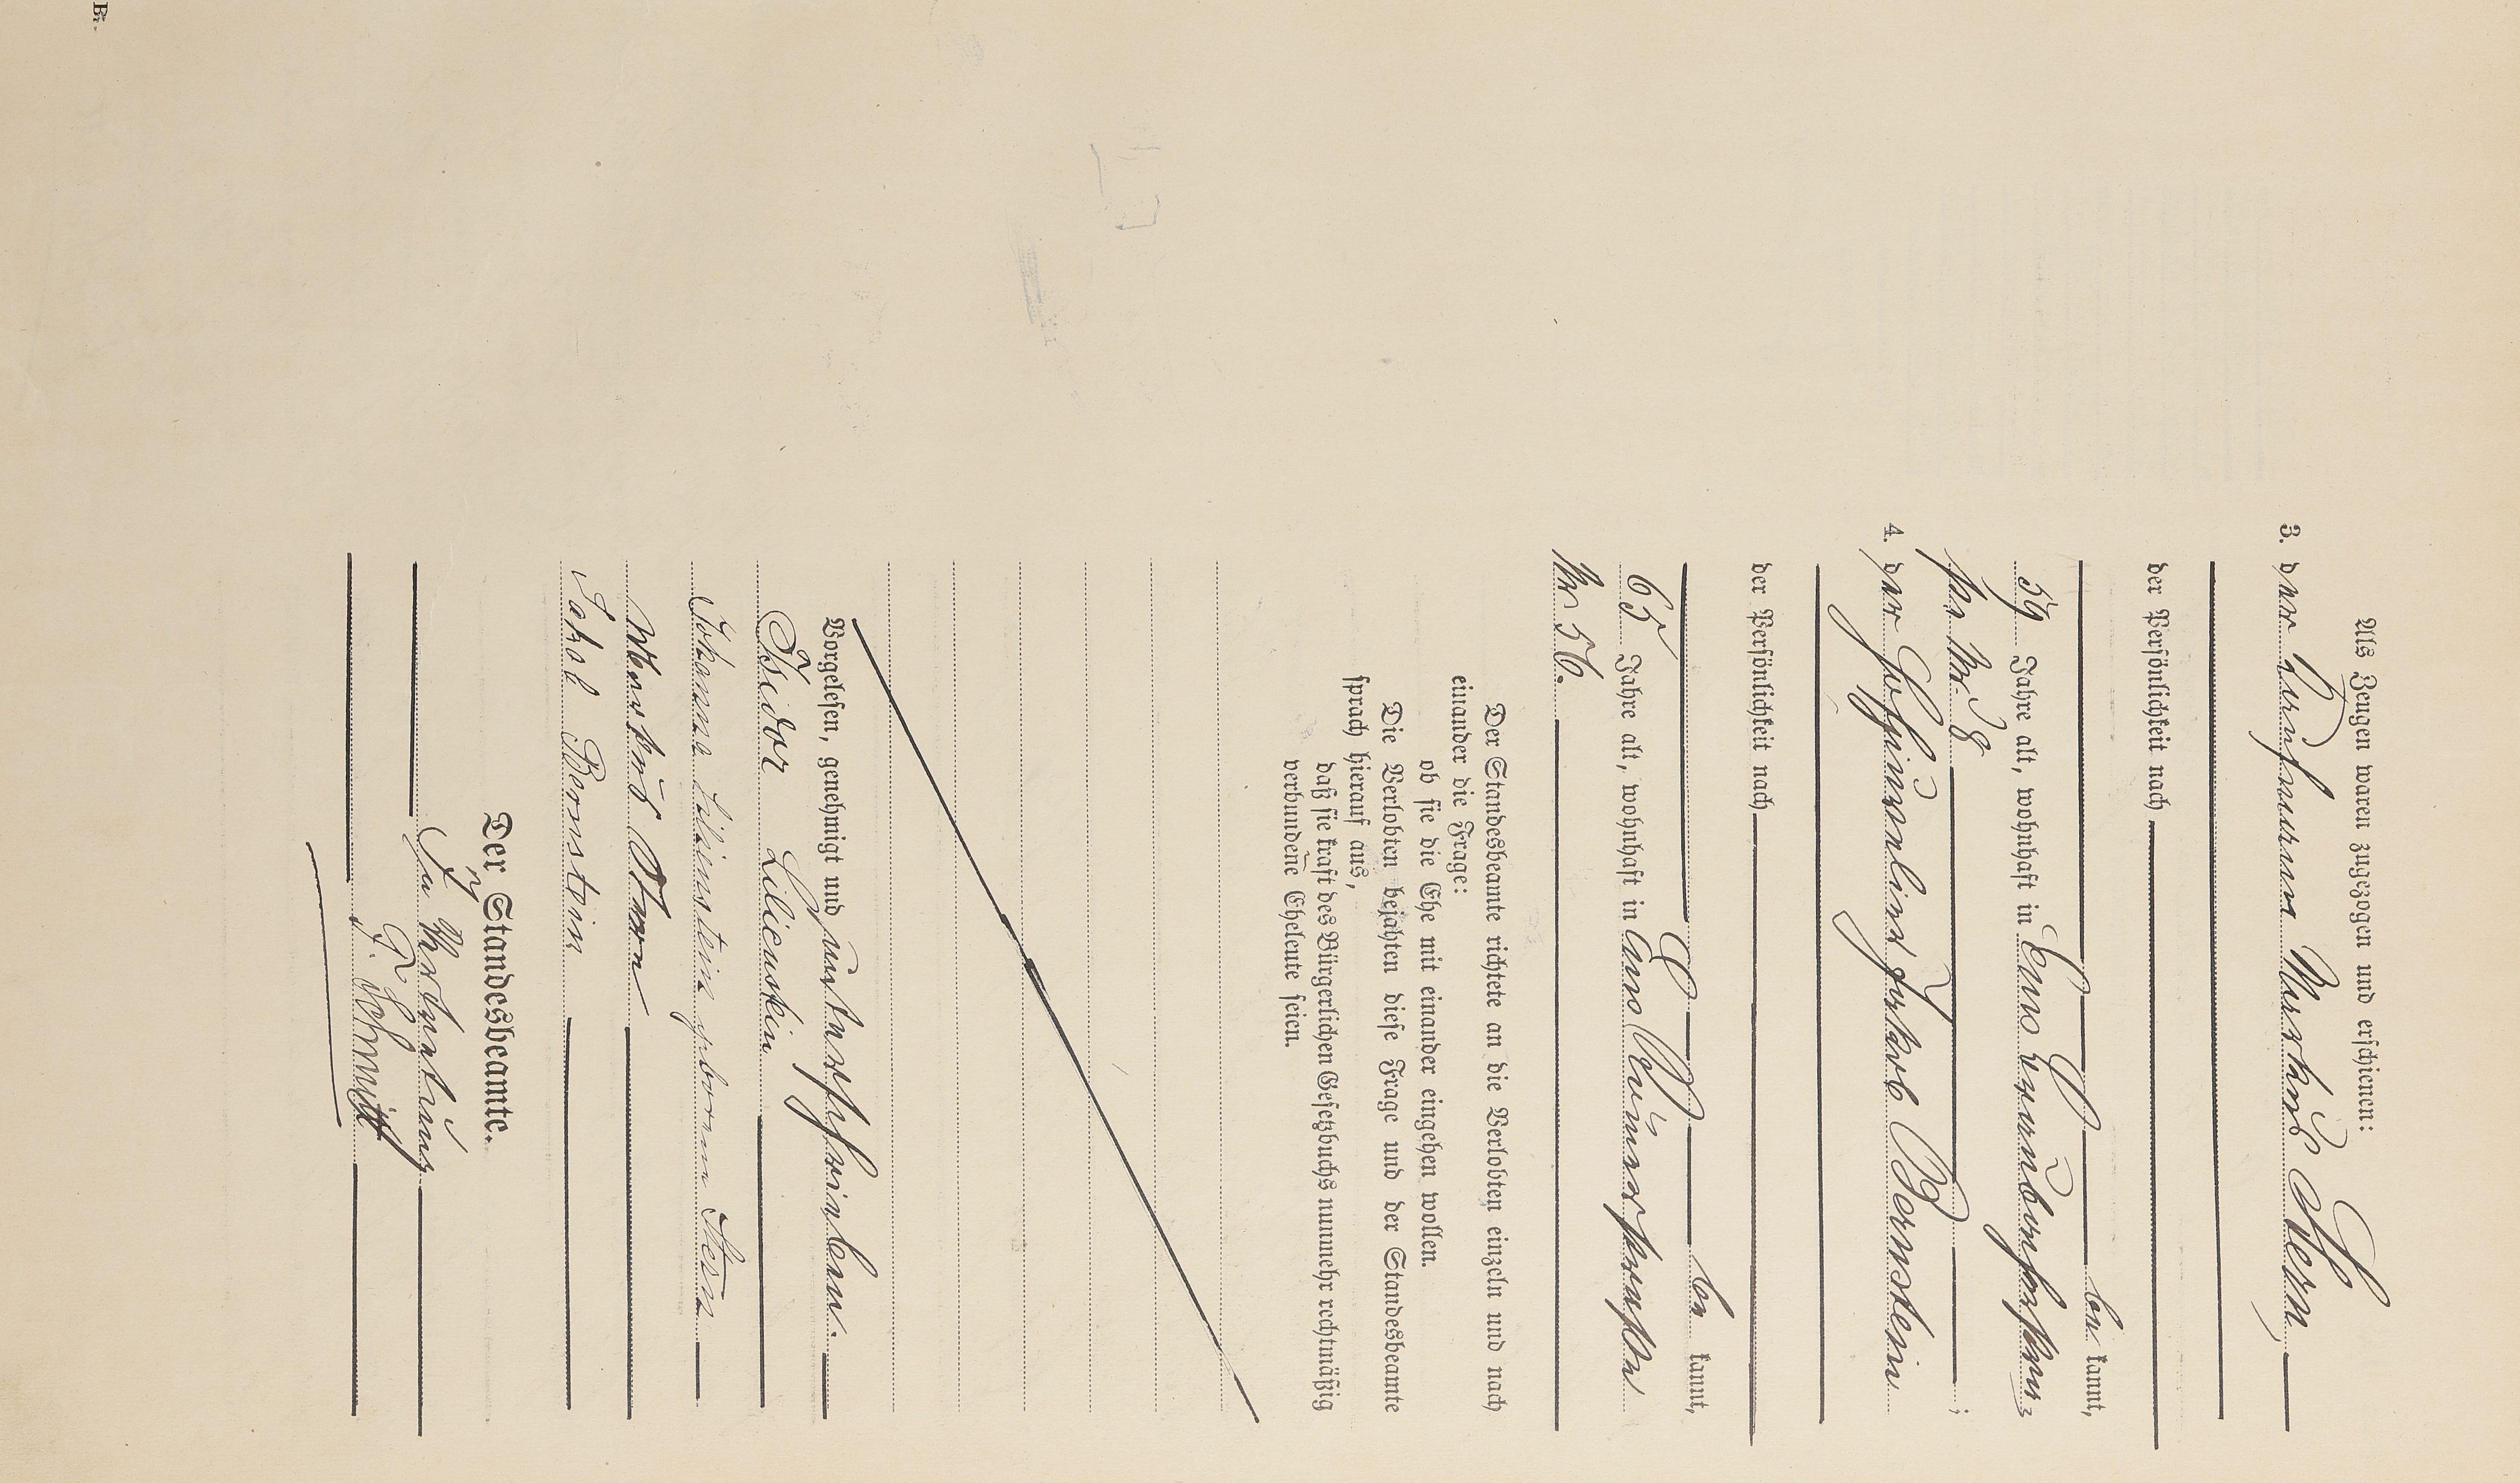 Als Zeugen waren zugezogen und erschienen:
3. der Kaufmann Markus Stern
der Persönlichkeit nach
be kannt,
59 Jahre alt, wohnhaft in Ems
Nr. 8 ;
4. der Jakob Bernstein
der Persönlichkeit nach
be kannt,
65 Jahre alt, wohnhaft in Ems Römerstraße
Nr 56.
Der Standesbeamte richtete an die Verlobten einzeln und nach
einander die Frage:
ob sie die Ehe mit einander eingehen wollen.
Die Verlobten bejahten diese Frage und der Standesbeamte
sprach hierauf aus,
daß sie kraft des Bürgerlichen Gesetzbuchs nunmehr rechtmäßig
verbundene Eheleute seien.
Vorgelesen, genehmigt und unterschrieben.
Isidor Lilienstein
Johanna Lilienstein geborene Stern
Markus Stern
Jakob Bernstein
Der Standesbeamte.
In Vertretung
F. Schmitt
Br.